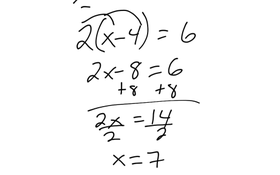 2(x-4) = 6
2x-8 = 6
+8 +8
2x/2 = 14/2
x = 7